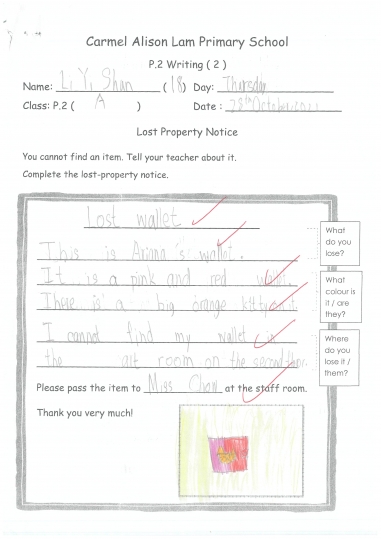 Carmel Alison Lam Primary School
P.2 Writing ( 2 )
Name: Li Yi Shan ( 18 ) Day: Thursday
Class: P.2 ( A ) Date : 28th October
Lost Property Notice
You cannot find an item. Tell your teacher about it.
Complete the lost-property notice.
Lost wallet
What do you lose?
This is Ariana's wallet.
It is a pink and red wallet.
What colour is it / are they?
There is a big orange kitty on it.
I cannot find my wallet in
Where do you lose it / them?
the art room on the second floor.
Please pass the item to Miss Chow at the staff room.
Thank you very much!